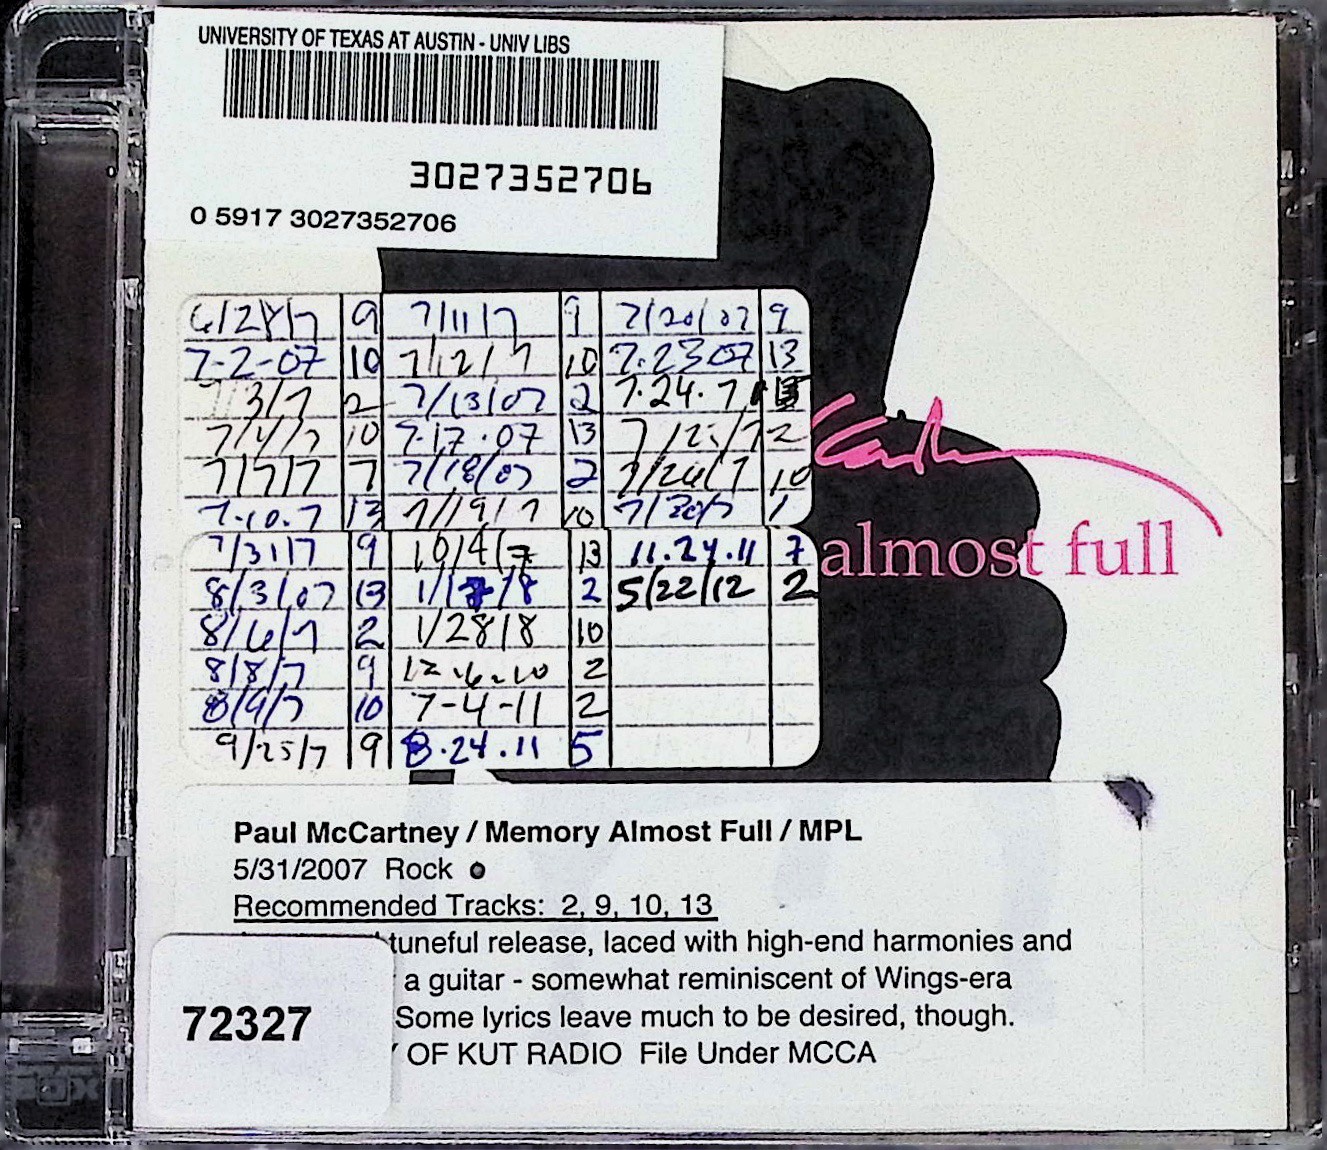 UNIVERSITY OF TEXAS AT AUSTIN - UNIV LIBS
3027352706
0 5917 3027352706
9 7/11/7 9 7/20/07 9
7-2-07 10 7/12/7 10 7.23 07 13
3/7 2 7/13/07 2 7.24.7
7/4/7 10 7.17.07 13 2
7/7/7 7 7/18/07 2 7/26/7 10
7.10.7 13 7/19/7 10 7/30/7 1
7/31/7 9 10/4/7 13 11.24.11 7
8/3/07 13 2 5/22/12 2
8/6/7 2 1/28/8 10
8/8/7 9 12.6.10 2
8/9/7 10 7-4-11 2
9/25/7 9 8.24.11 5
almost full
Paul McCartney / Memory Almost Full / MPL
5/31/2007 Rock
Recommended Tracks: 2, 9, 10, 13
tuneful release, laced with high-end harmonies and
a guitar - somewhat reminiscent of Wings-era
Some lyrics leave much to be desired, though.
OF KUT RADIO File Under MCCA
72327